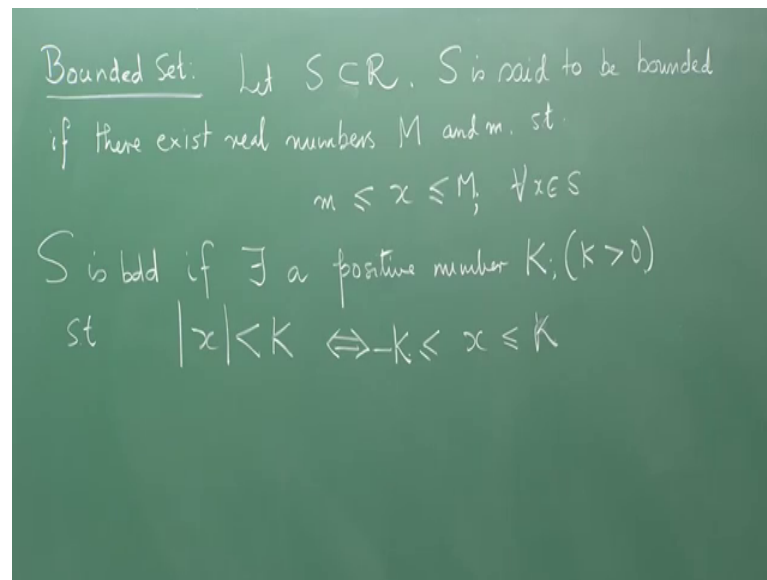 Bounded Set: Let S ⊂ R. S is said to be bounded
if there exist real numbers M and m. st.
m ⩽ x ⩽ M; ∀x∈S
S is bdd if ∃ a positive number K; (K > 0)
st |x| < K ⇔ -K ⩽ x ⩽ K